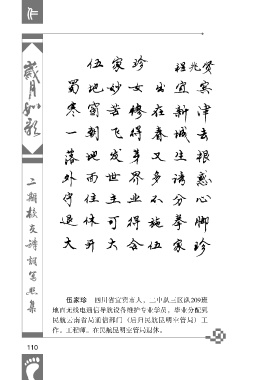 作
岁月如歌
二期校友诗词写照集
伍家珍 程光贤
蜀地妙女出宜宾
寒窗苦修在新津
一朝飞得春城去
落地发芽又生根
外面世界多诱惑
守住主业不分心
退休可得施拳脚
天开大会伍家珍
伍家珍 四川省宜宾市人,二中队三区队209班
地面无线电通信导航设备维护专业学员,毕业分配到
民航云南省局通信部门(后归民航昆明空管局)工
作。工程师。在民航昆明空管局退休。
110